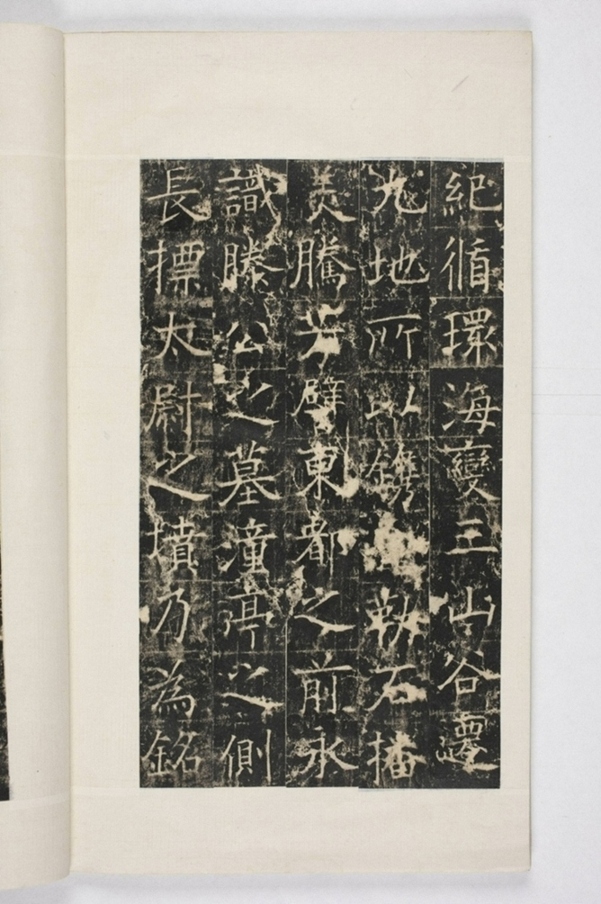 紀循環海變三山谷遷
九地所以鐫勒石播
美騰芳譬東都之前永
識滕公之墓潼亭之側
長標太尉之墳乃為銘